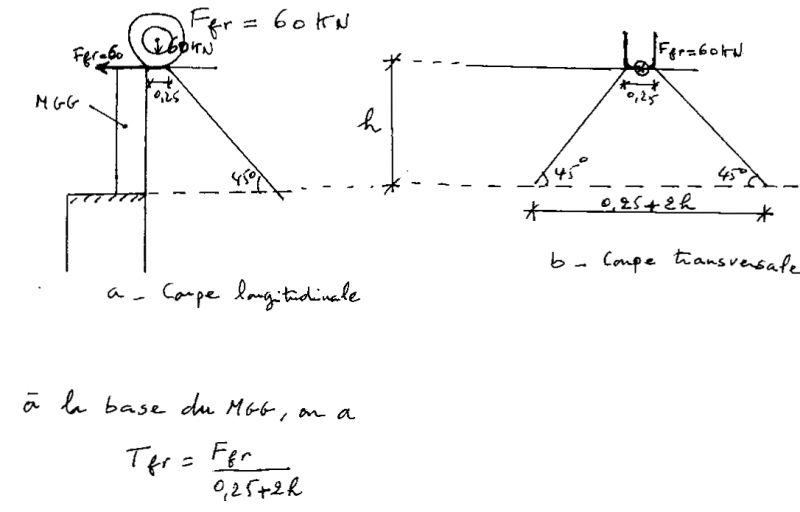 Ffr = 60 KN
Ffr=60
60KN
0,25
MGG
45°
a - Coupe longitudinale
Ffr=60KN
0,25
h
45°
45°
0,25+2h
b - Coupe transversale
à la base du MGG, on a
Tfr = Ffr
0,25+2h